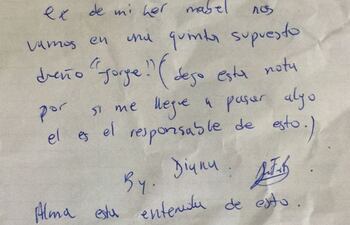 ex de mi her mabel nos
vamos en una quinta supuesto
dueño "Jorge!" (dejo esta nota
por si me llegue a pasar algo
el es el responsable de esto.)
By. Diana.
Alma esta enterada de esto.